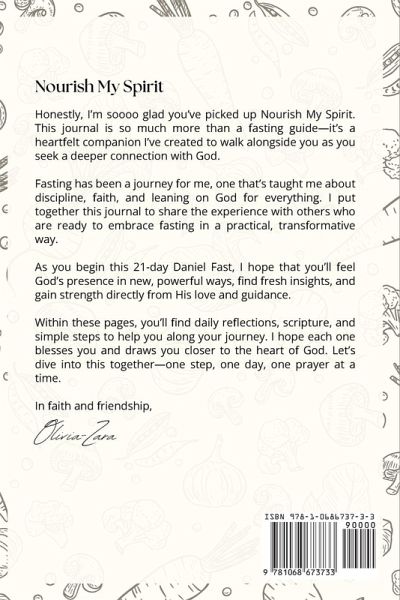 Nourish My Spirit
Honestly, I'm soooo glad you've picked up Nourish My Spirit.
This journal is so much more than a fasting guide—it's a
heartfelt companion I've created to walk alongside you as you
seek a deeper connection with God.
Fasting has been a journey for me, one that's taught me about
discipline, faith, and leaning on God for everything. I put
together this journal to share the experience with others who
are ready to embrace fasting in a practical, transformative
way.
As you begin this 21-day Daniel Fast, I hope that you'll feel
God's presence in new, powerful ways, find fresh insights, and
gain strength directly from His love and guidance.
Within these pages, you'll find daily reflections, scripture, and
simple steps to help you along your journey. I hope each one
blesses you and draws you closer to the heart of God. Let's
dive into this together—one step, one day, one prayer at a
time.
In faith and friendship,
Olivia-Zara
ISBN 978-1-0686737-3-3
90000
9 781068 673733